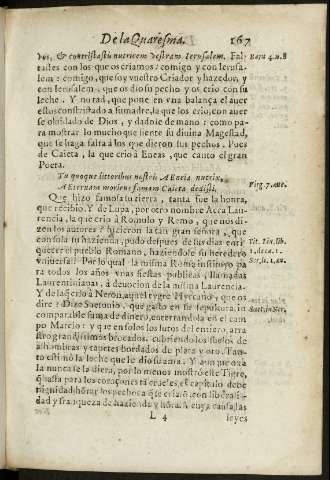 De la Quaresma. 167
dos, & contristastis nutricem vestram Ierusalem. Fal-
tastes con los que os criamos: comigo y con Ierusa-
lem: comigo, que soy vuestro Criador y hazedor, y
con Ierusalem, que os dio su pecho y os crio con su
leche. Y notad, que pone en vna balança el auer
estos contristado a su madre, la que los crio, con auer
se oluidado de Dios, y dadole de mano: como pa-
ra mostrar lo mucho que siente su diuina Magestad,
que se haga falta a los que dieron sus pechos. Pues
de Caieta, la que crio a Eneas, que canto el gran
Poeta.
Tu quoque littoribus nostris Aeneia nutrix,
Aeternam moriens famam Caieta dedisti.
Que hizo famosa su tierra, tanta fue la honra,
que recibio. Y de Lupa, por otro nombre Acca Lau-
rencia, la que crio a Romulo y Remo, que nos di-
zen los autores hizieron la tan gran señora, que
con sola su hazienda, pudo despues de sus dias enri
quecer el pueblo Romano, haziendole su heredero
vniuersal? Por lo qual la misma Roma instituyo pa
ra todos los años vnas fiestas publicas, llamadas
Laurentinianas, à deuocion de la misma Laurencia.
Y de la que crio à Neron, aquel tygre Hyrcano, que os
dire? Dize Suetonio, que gasto en su sepultura, in
comparable suma de dinero, enterrandola en el cam
po Marcio: y que en solos los lutos del entierro, arra
stro grandissimos brocados, cubriendo los suelos de
alhombras y tapetes bordados de plata y oro. Fau-
to estimò la leche que le dio su ama. Y aun que oxa
la nunca se la diera, por lo menos mostrò este Tigre,
que
dignidad y honra à los pechos que le criarõ, con liberali-
dad y franqueza de hazienda y hõra. A cuya causa, las
L 4 leyes
Baru 4. n. 8
Virg. 7. aene.
Tit. Liu. lib.
1. deca. 1.
Ser. in. 1. ae.
Suet. in Ner.